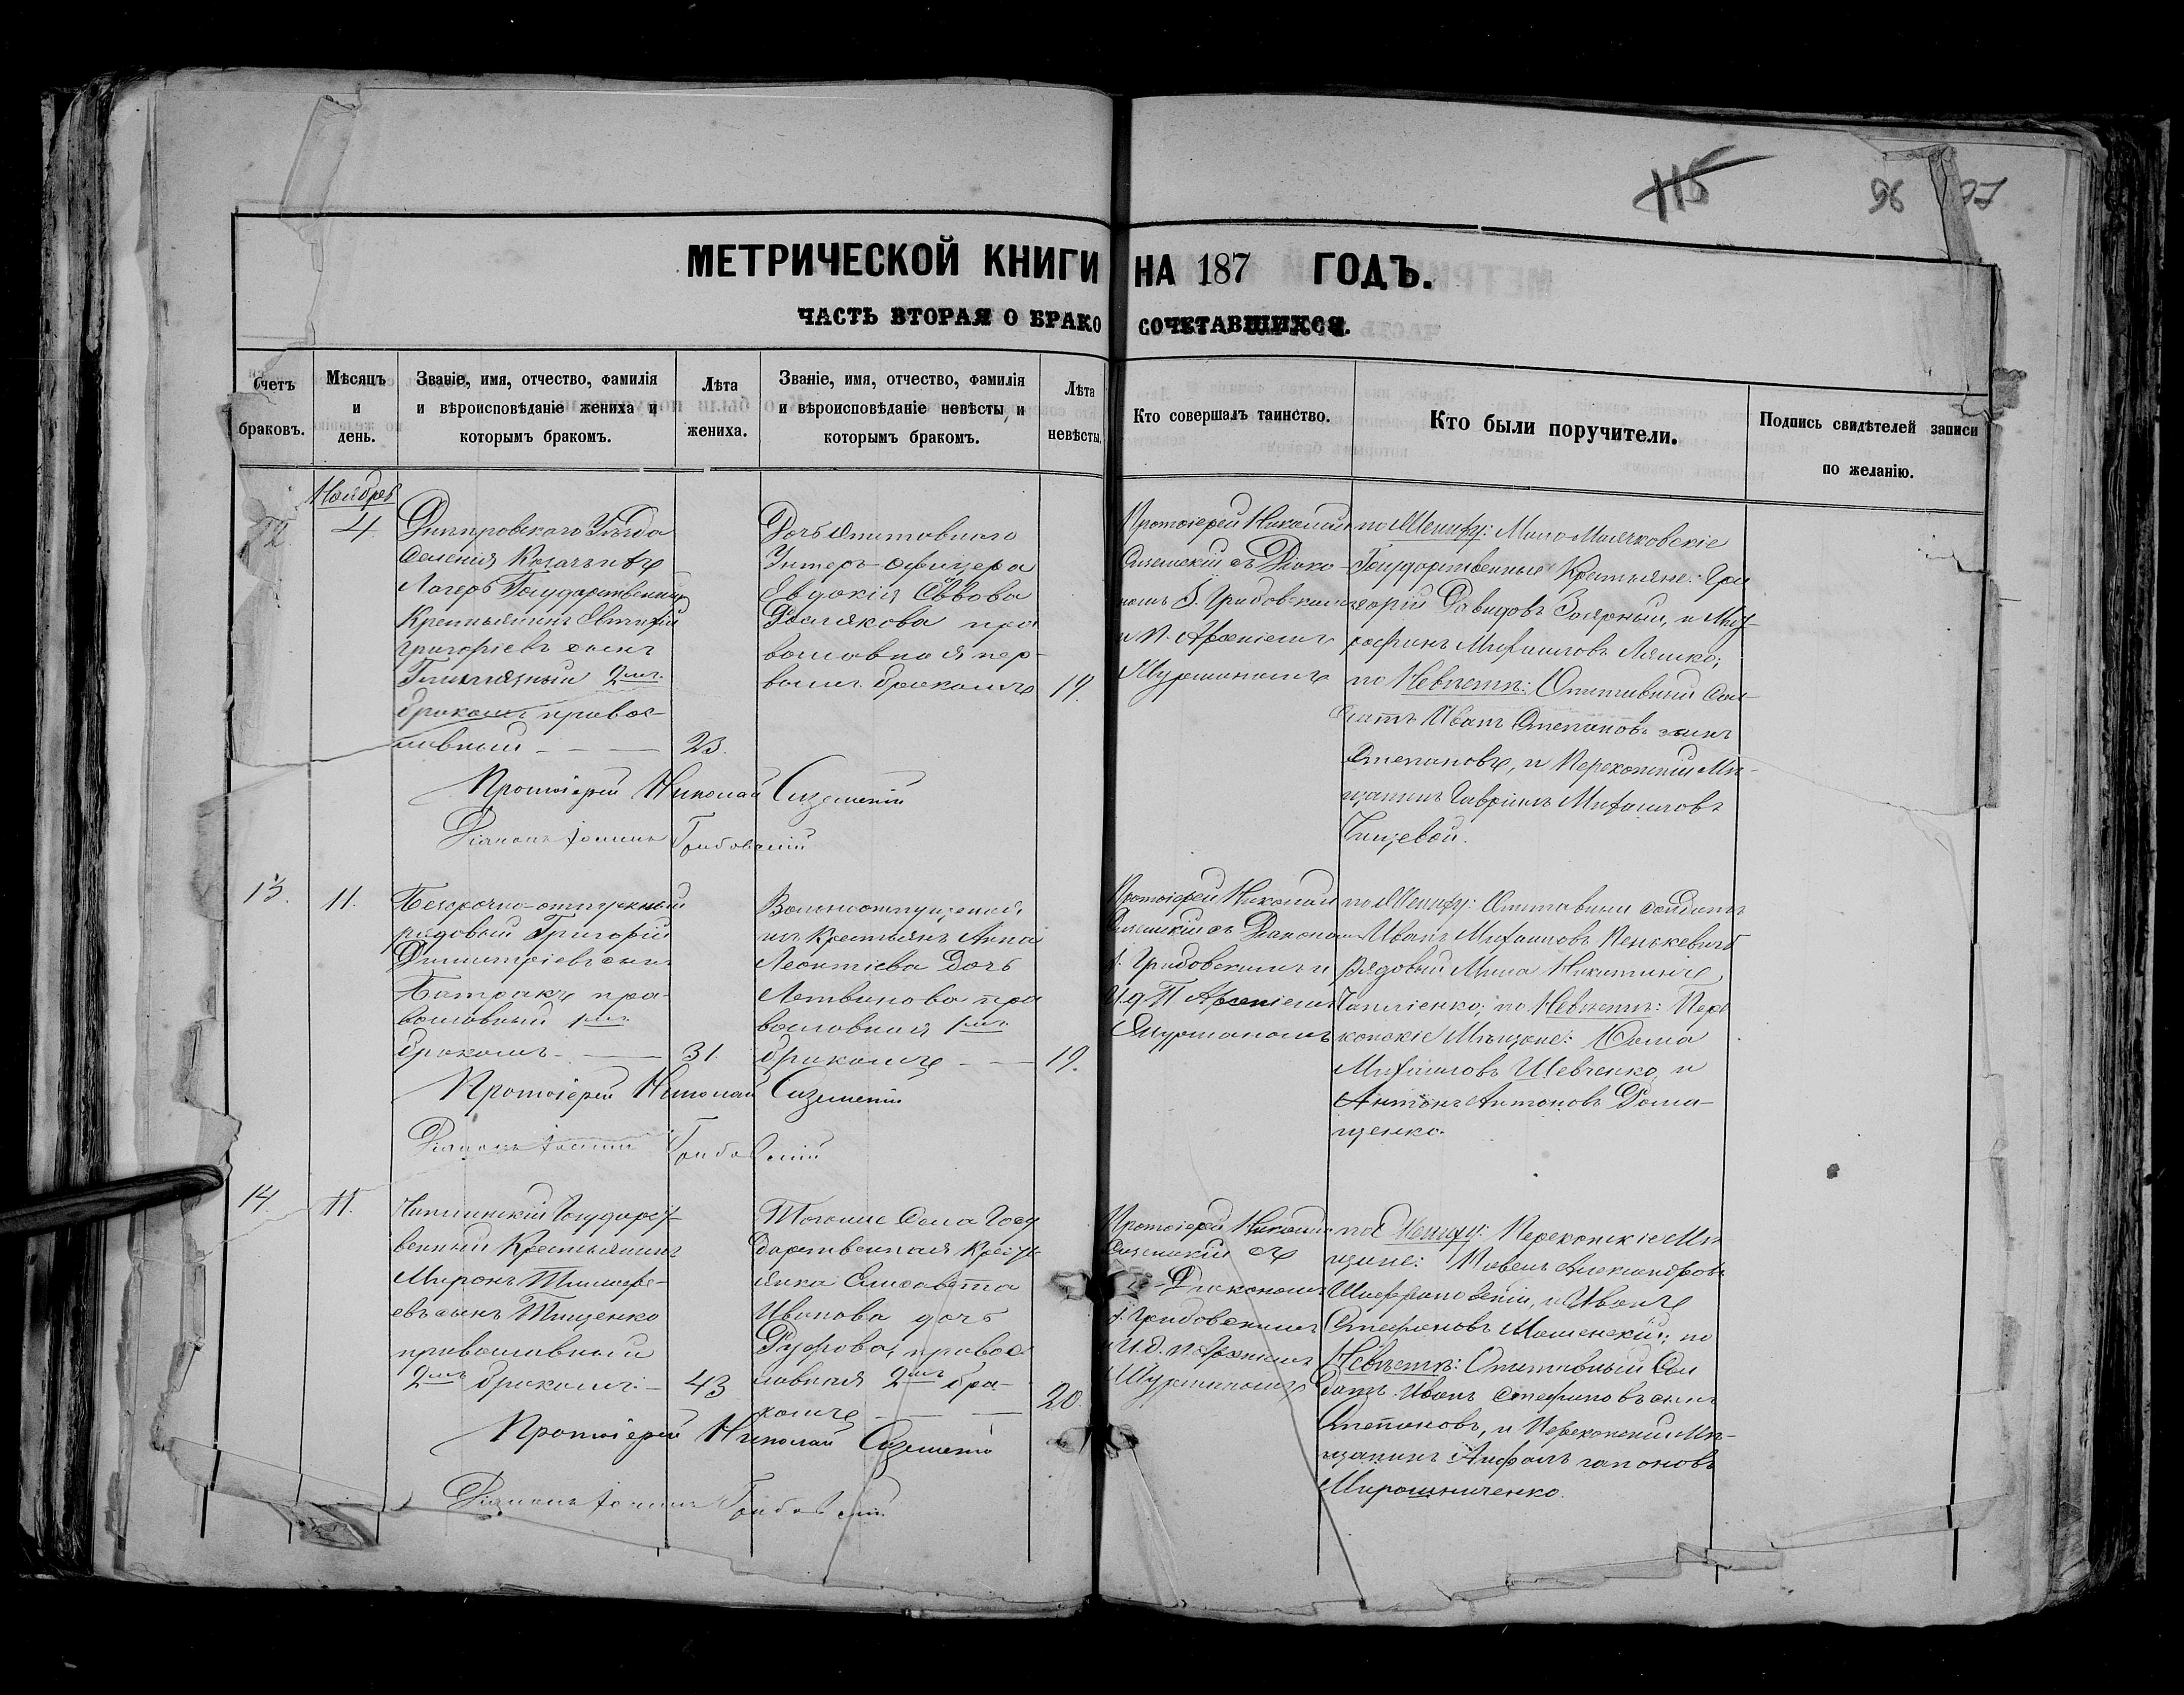 115
96
МЕТРИЧЕСКОЙ КНИГИ НА 187 ГОДЪ.
ЧАСТЬ ВТОРАЯ О БРАКОСОЧЕТАВШИХСЯ.
Счетъ браковъ.
Мѣсяцъ и день.
Званіе, имя, отчество, фамилія и вѣроисповѣданіе жениха и которымъ бракомъ.
Лѣта жениха.
Званіе, имя, отчество, фамилія и вѣроисповѣданіе невѣсты и которымъ бракомъ.
Лѣта невѣсты.
Кто совершалъ таинство.
Кто были поручители.
Подпись свидѣтелей записи по желанію.
Ноября
4.
Днѣпровскаго Уѣзда
Селенія Казачьихъ
Лагерь Государственный
Крестьянинъ Евтихій
Григоріевъ сынъ
2мъ
бракомъ правос-
лавный
23.
Дочь отставнаго
Унтеръ-офицера
Евдокія Саввова
пра
вославная пер-
вымъ бракомъ
19.
Протоіерей Николай
съ Діако-
номъ І. Грибовскимъ
и П. Арсеніемъ
по Жениху: Мало Маячковскіе
Государственные Крестьяне: Гри
горій Давидовъ Заярный, и Мит
рофанъ Михаиловъ Ляшко;
по Невѣстѣ: Отставный Сол-
датъ Иванъ Степановъ сынъ
Степановъ, и Перекопскій Мѣ-
щанинъ Гавріилъ Михаиловъ
Протоіерей Николай
Діаконъ Іоаннъ Грибовскій
13.
11.
Безсрочно-отпускный
рядовый Григорій
Димитріевъ сынъ
Батракъ пра-
вославный 1мъ
бракомъ
31.
Вольноотпущенная
изъ Крестьянъ Анна
Леонтіева дочь
Летвинова пра
вославная 1мъ
бракомъ
19.
Протоіерей Николай
съ Діакономъ
І. Грибовскимъ и
И.д. П. Арсеніемъ
по Жениху: Отставный солдатъ
Иванъ Михаиловъ Пенькевичъ
рядовый Мина Никитинъ
Чаплієнко; по Невѣстѣ: Пере
копскіе Мѣщане: Ѳома
Михаиловъ Шевченко и
Антонъ Антоновъ Дома-
щенко.
Протоіерей Николай
Діаконъ Іоаннъ Грибовскій
14.
11.
Чаплинскій Государст
венный Крестьянинъ
Миронъ Тимофе-
евъ сынъ Тищенко
православный
2мъ бракомъ
43
Тогоже Села Госу
дарственная Крестья
янка Елисавета
Иванова дочь
правос
лавная 2мъ бра-
комъ
20.
Протоіерей Николай
съ
Діакономъ
І. Грибовскимъ
и И.д. П. Арсеніемъ
по Жениху: Перекопскіе Мѣ
щане: Павелъ Александровъ
и Иванъ
Стефановъ Машенскій; по
Невѣстѣ: Отставный Сол
датъ Иванъ Стефановъ сынъ
Степановъ, и Перекопскій Мѣ-
щанинъ
Мирошниченко.
Протоіерей Николай
Діаконъ Іоаннъ Грибовскій